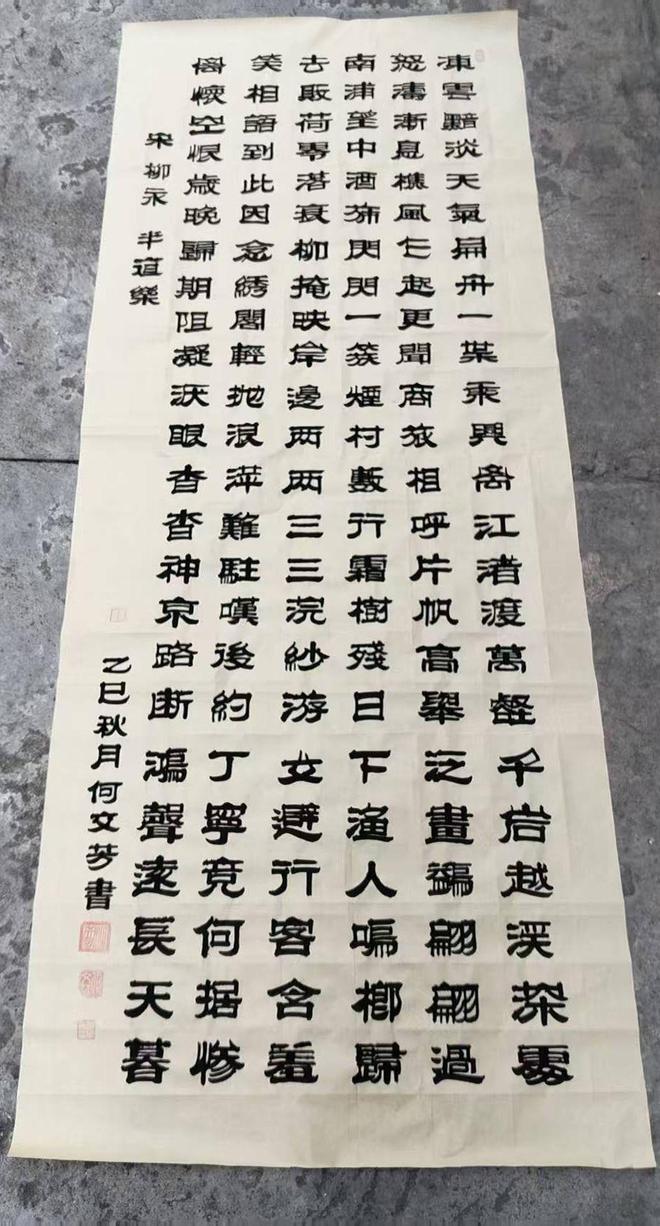 凍雲黯淡天氣扁舟一葉乘興离江渚渡萬壑千岩越溪深處
怒濤漸息樵風乍起更聞商旅相呼片帆高舉泛畫鷁翩翩過
南浦望中酒旆閃閃一簇煙村數行霜樹殘日下漁人鳴榔歸
去敗荷零落衰柳掩映岸邊两两三三浣紗游女避行客含羞
笑相語到此因念綉閣輕拋浪萍難駐嘆後約丁寧竟何据慘
离懷空恨歲晚歸期阻凝淚眼杳杳神京路断鴻聲遠長天暮
宋柳永半道樂
乙巳秋月何文芬書